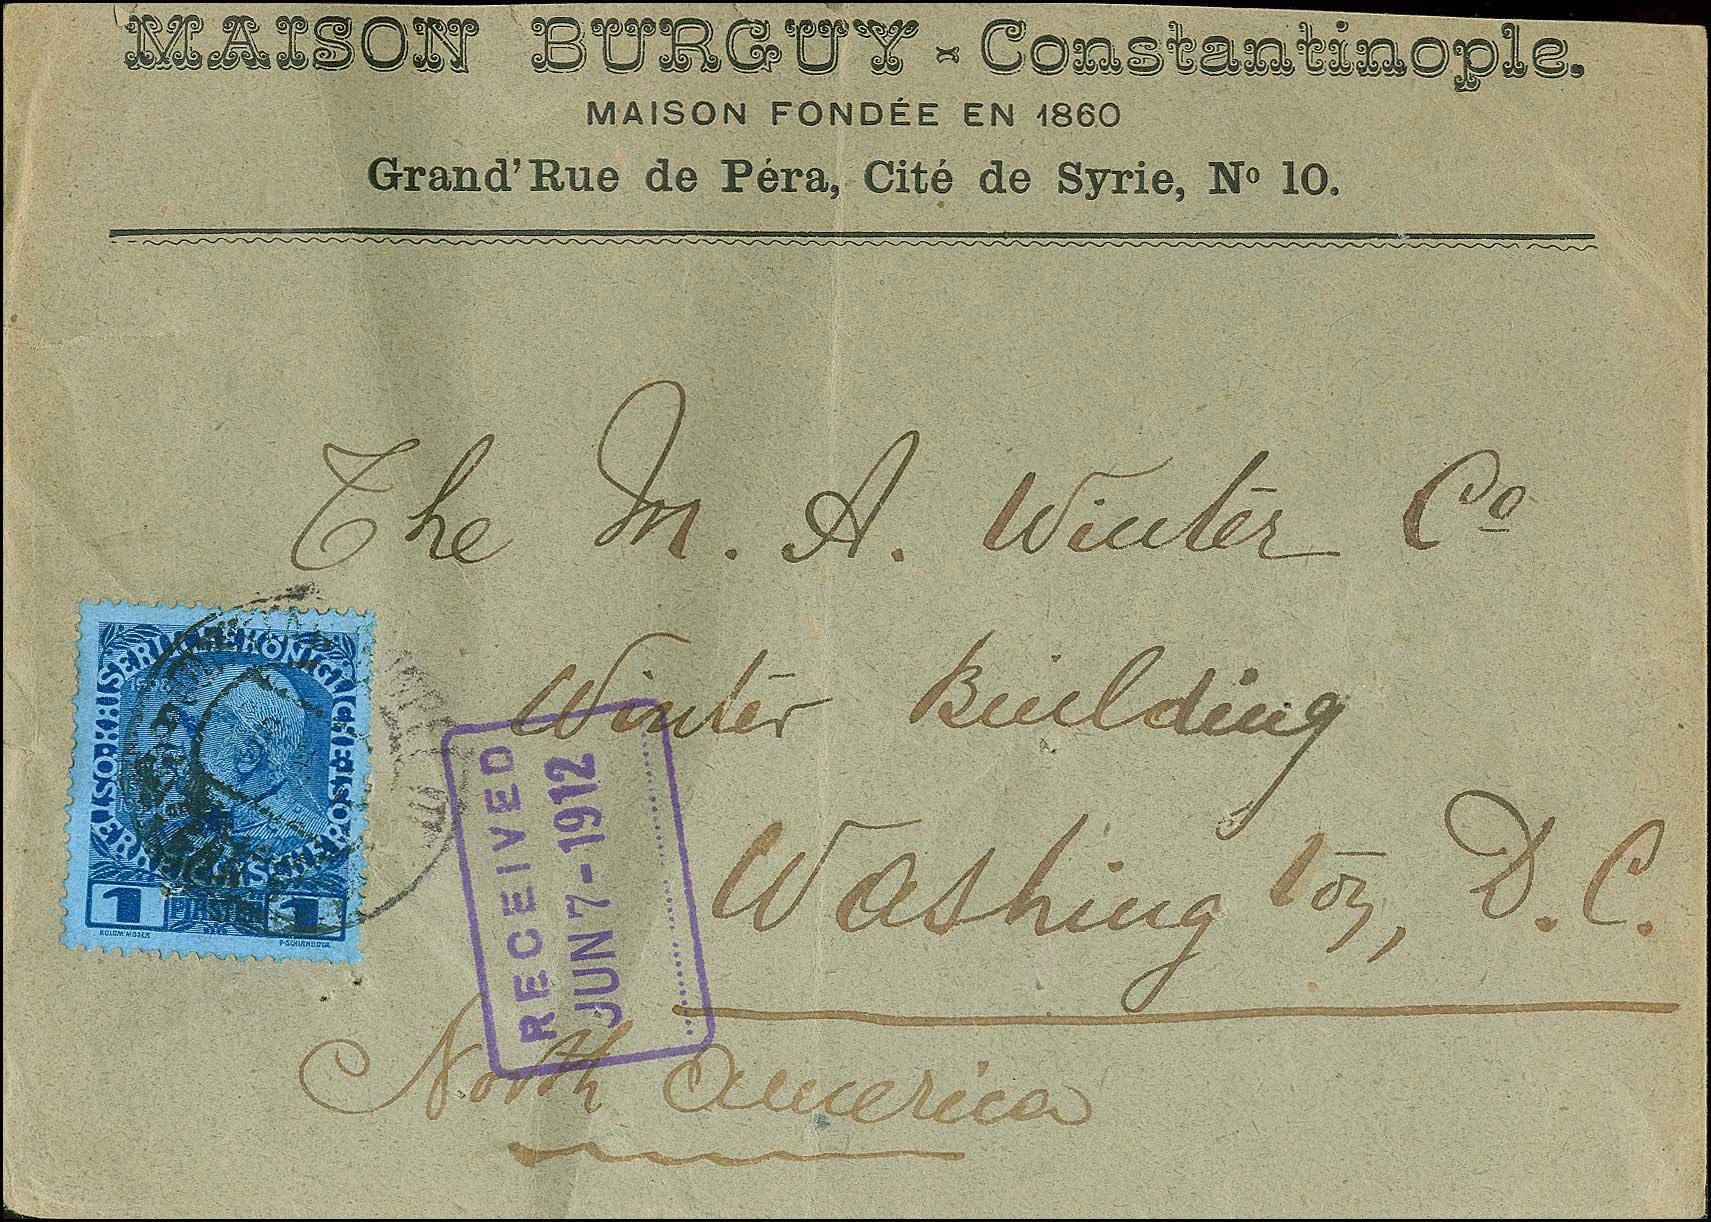 MAISON BURGUY - Constantinople.
MAISON FONDÉE EN 1860
Grand'Rue de Péra, Cité de Syrie, Nº 10.
The M. A. Winter Co
Winter Building
Washington, D. C.
North America
RECEIVED
JUN 7-1912
KAISERLICHE KÖNIGLICHE ÖSTERREICHISCHE POST
1908
1 PIASTER 1
KOLOM·MOSER
F·SCHIRNBÖCK